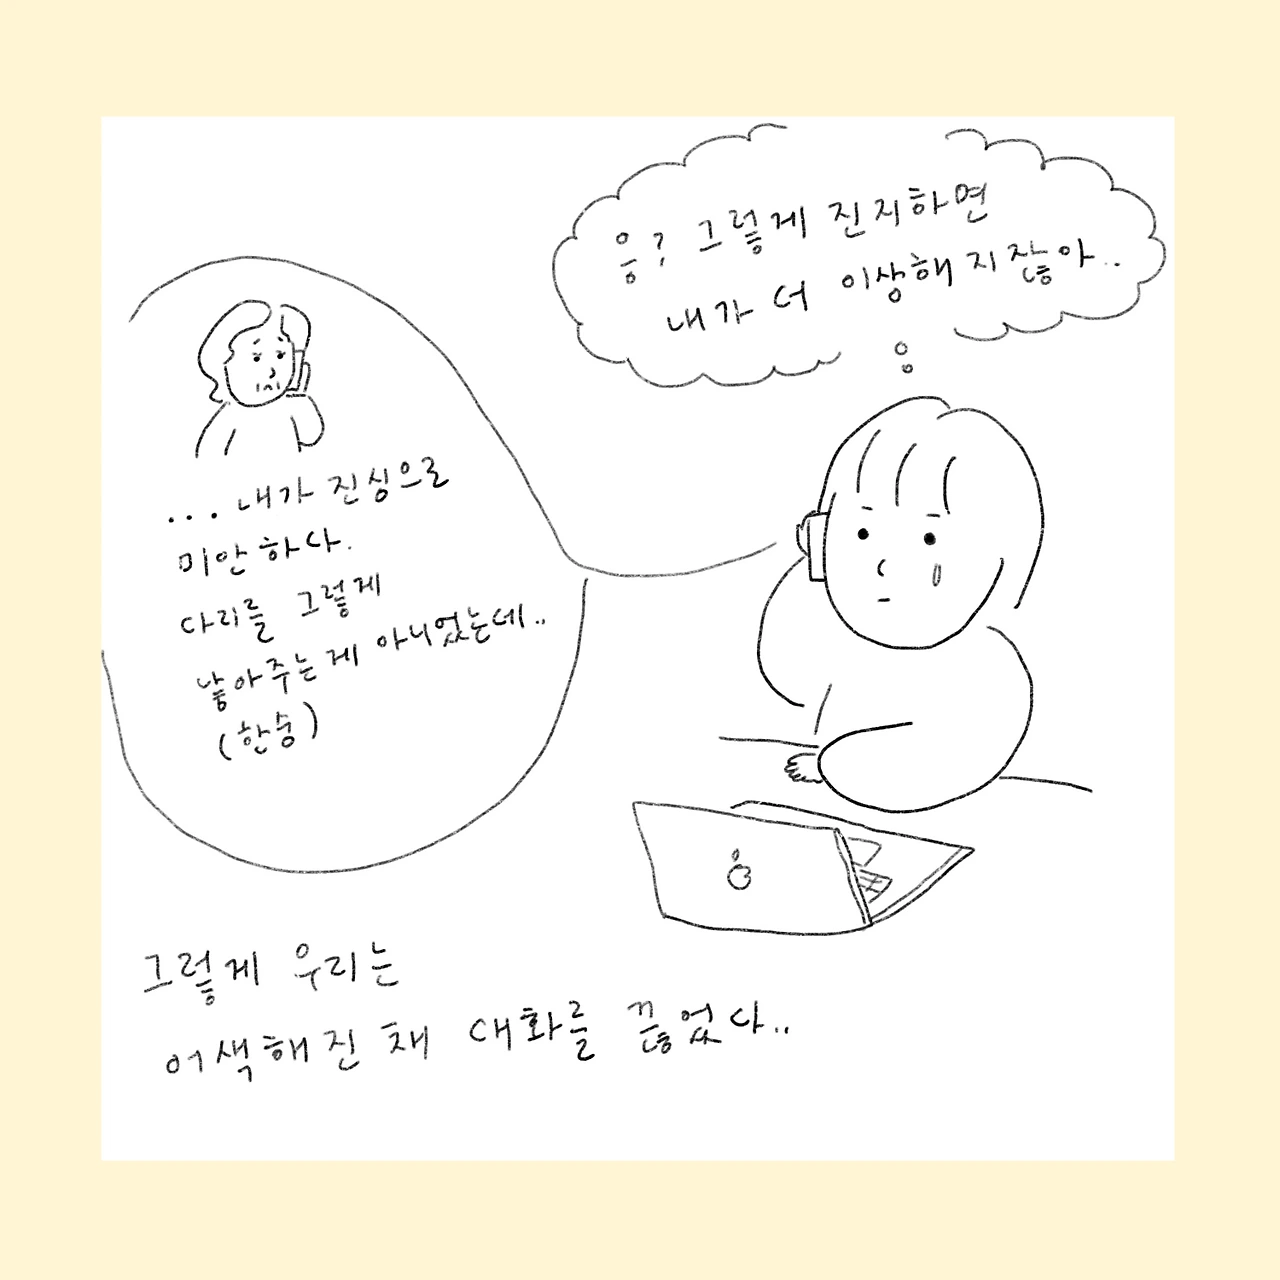 응? 그렇게 진지하면
내가 더 이상해지잖아..
... 내가 진심으로
미안하다.
다리를 그렇게
낳아주는게 아니었는데..
(한숨)
그렇게 우리는
어색해진 채 대화를 끊었다..